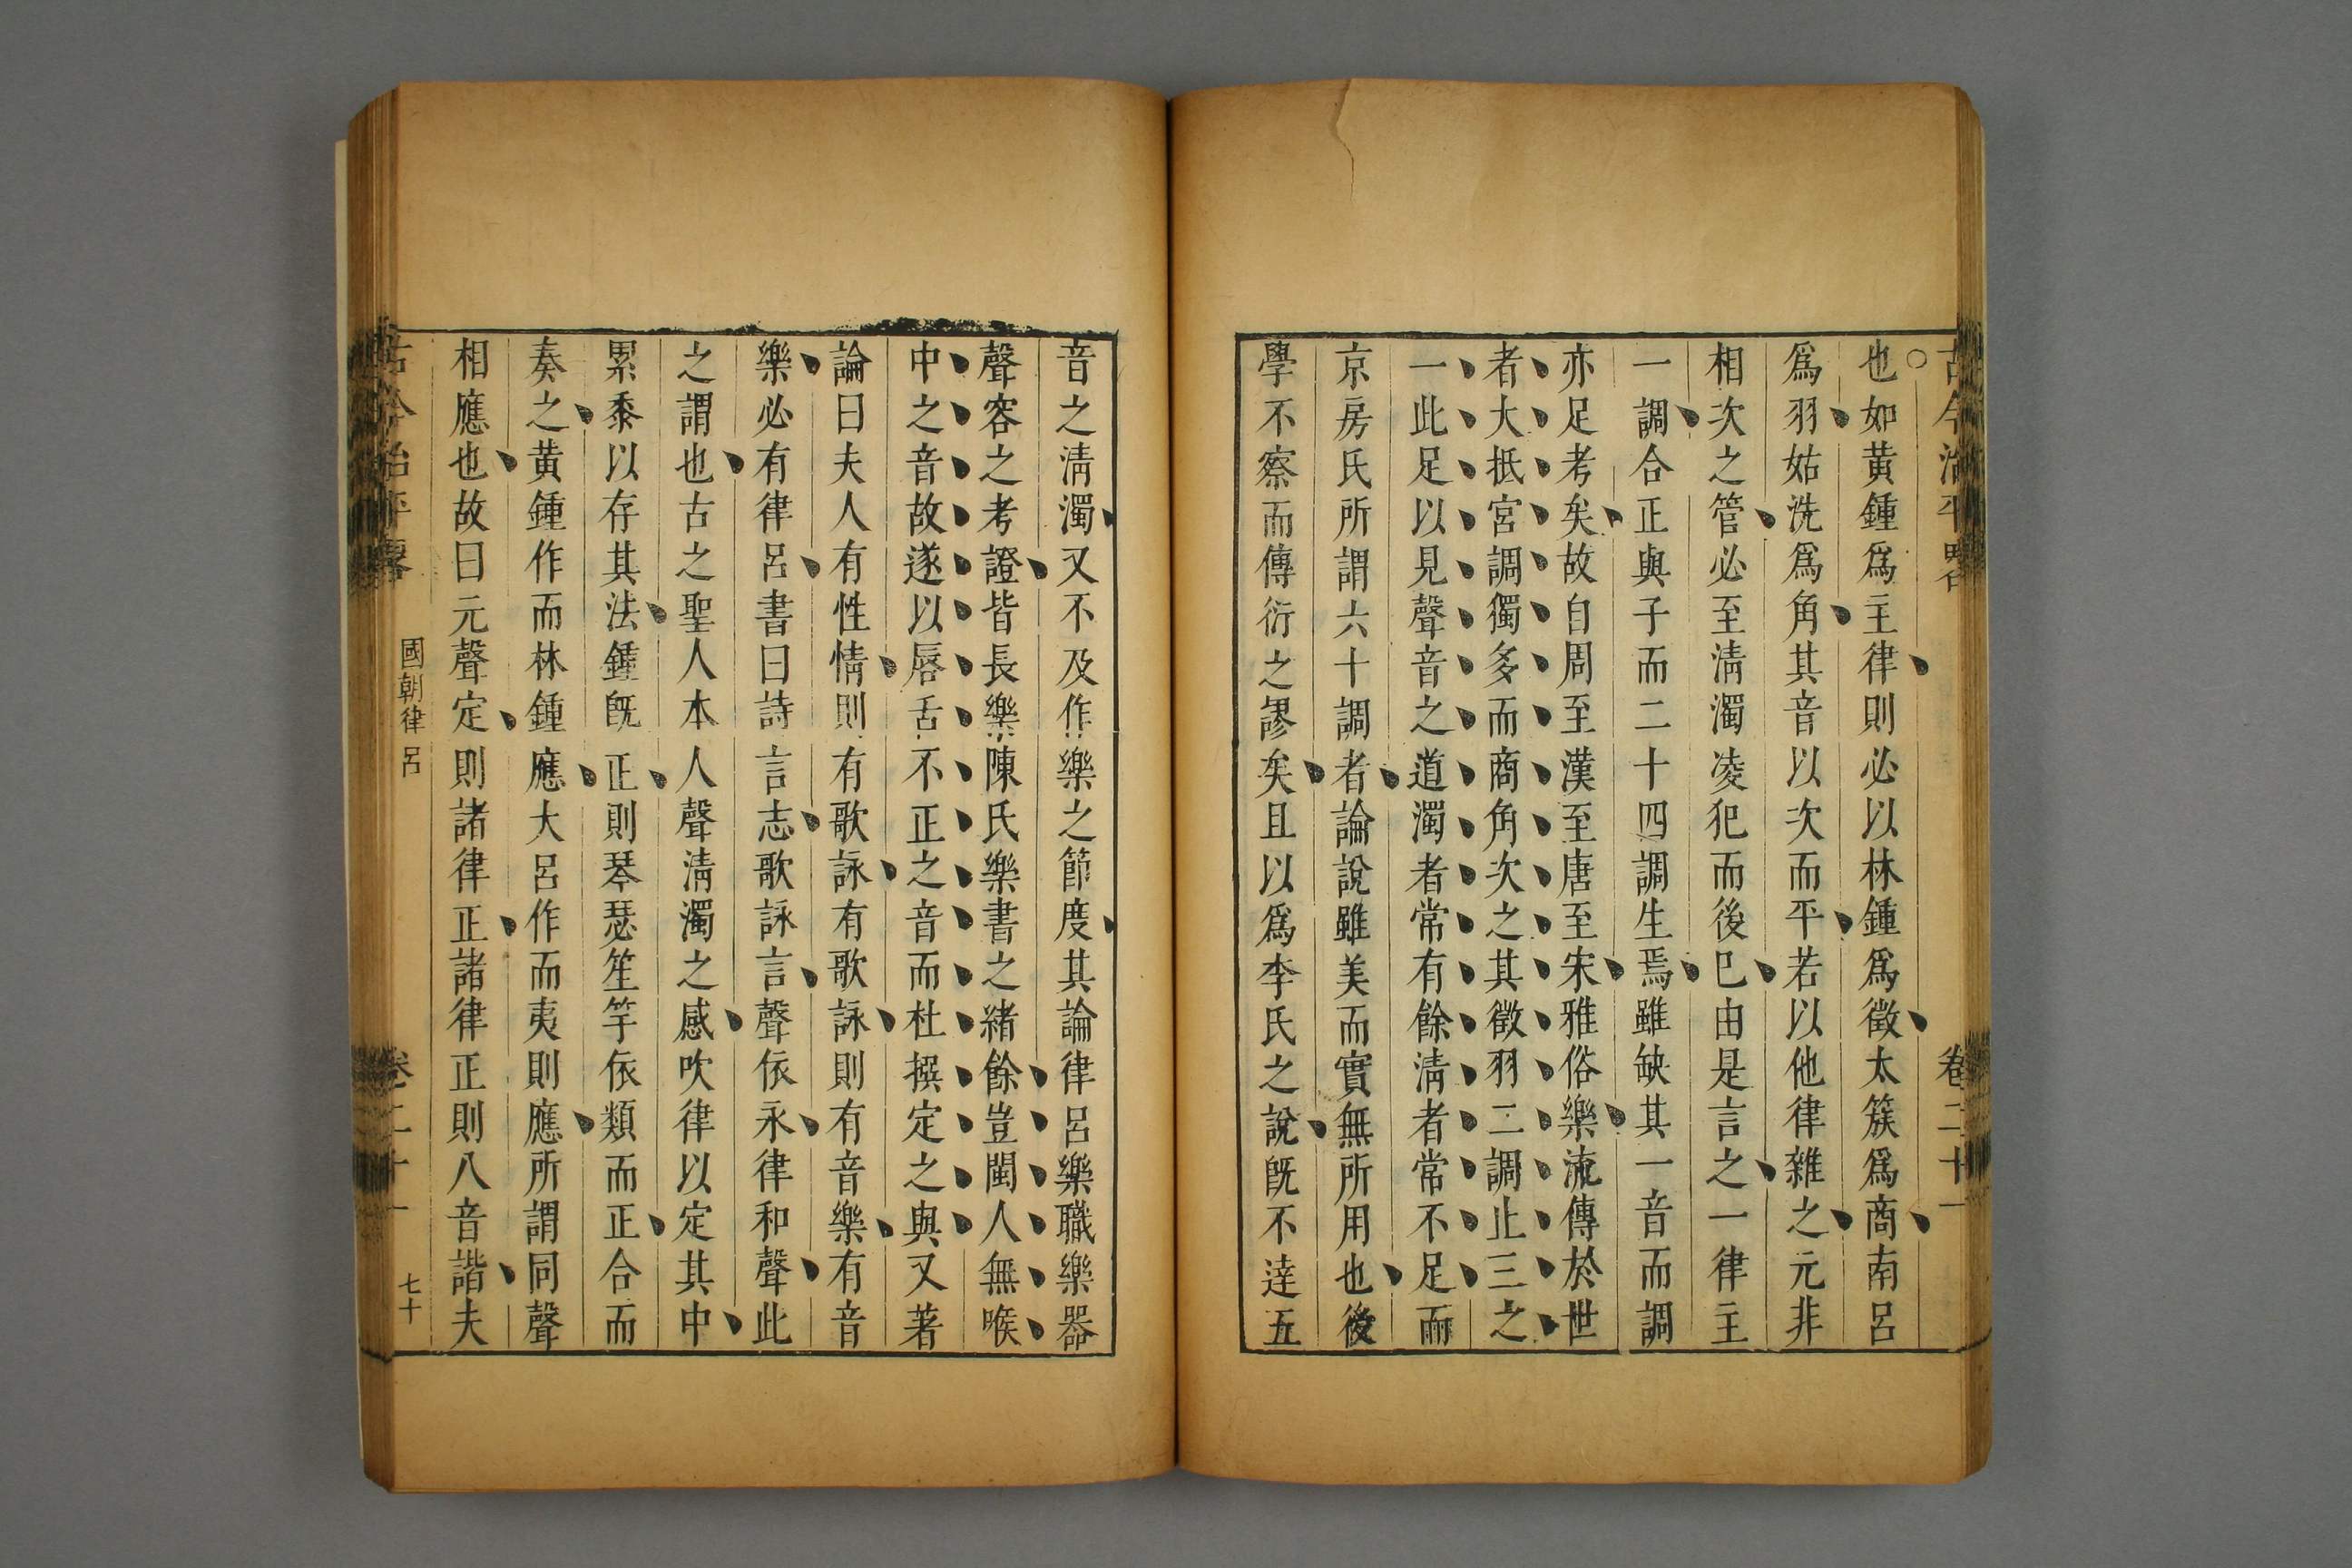 古今治平畧
卷二十一
也如黃鍾爲主律則必以林鍾爲徵太簇爲商南呂
爲羽姑洗爲角其音以次而平若以他律雜之元非
相次之管必至淸濁凌犯而後巳由是言之一律主
一調合正與子而二十四調生焉雖缺其一音而調
亦足考矣故自周至漢至唐至宋雅俗樂流傳於世
者大抵宮調獨多而商角次之其徵羽二調止三之
一此足以見聲音之道濁者常有餘淸者常不足而
京房氏所謂六十調者論說雖美而實無所用也後
學不察而傳衍之謬矣且以爲李氏之說旣不達五
音之淸濁又不及作樂之節度其論律呂樂職樂器
聲容之考證皆長樂陳氏樂書之緒餘豈閩人無喉
中之音故遂以唇舌不正之音而杜撰定之與又著
論曰夫人有性情則有歌詠有歌詠則有音樂有音
樂必有律呂書曰詩言志歌詠言聲依永律和聲此
之謂也古之聖人本人聲淸濁之感吹律以定其中
累黍以存其法鍾旣正則琴瑟笙竽依類而正合而
奏之黃鍾作而林鍾應大呂作而夷則應所謂同聲
相應也故曰元聲定則諸律正諸律正則八音諧夫
古今治平畧
國朝律呂
卷二十一
七十